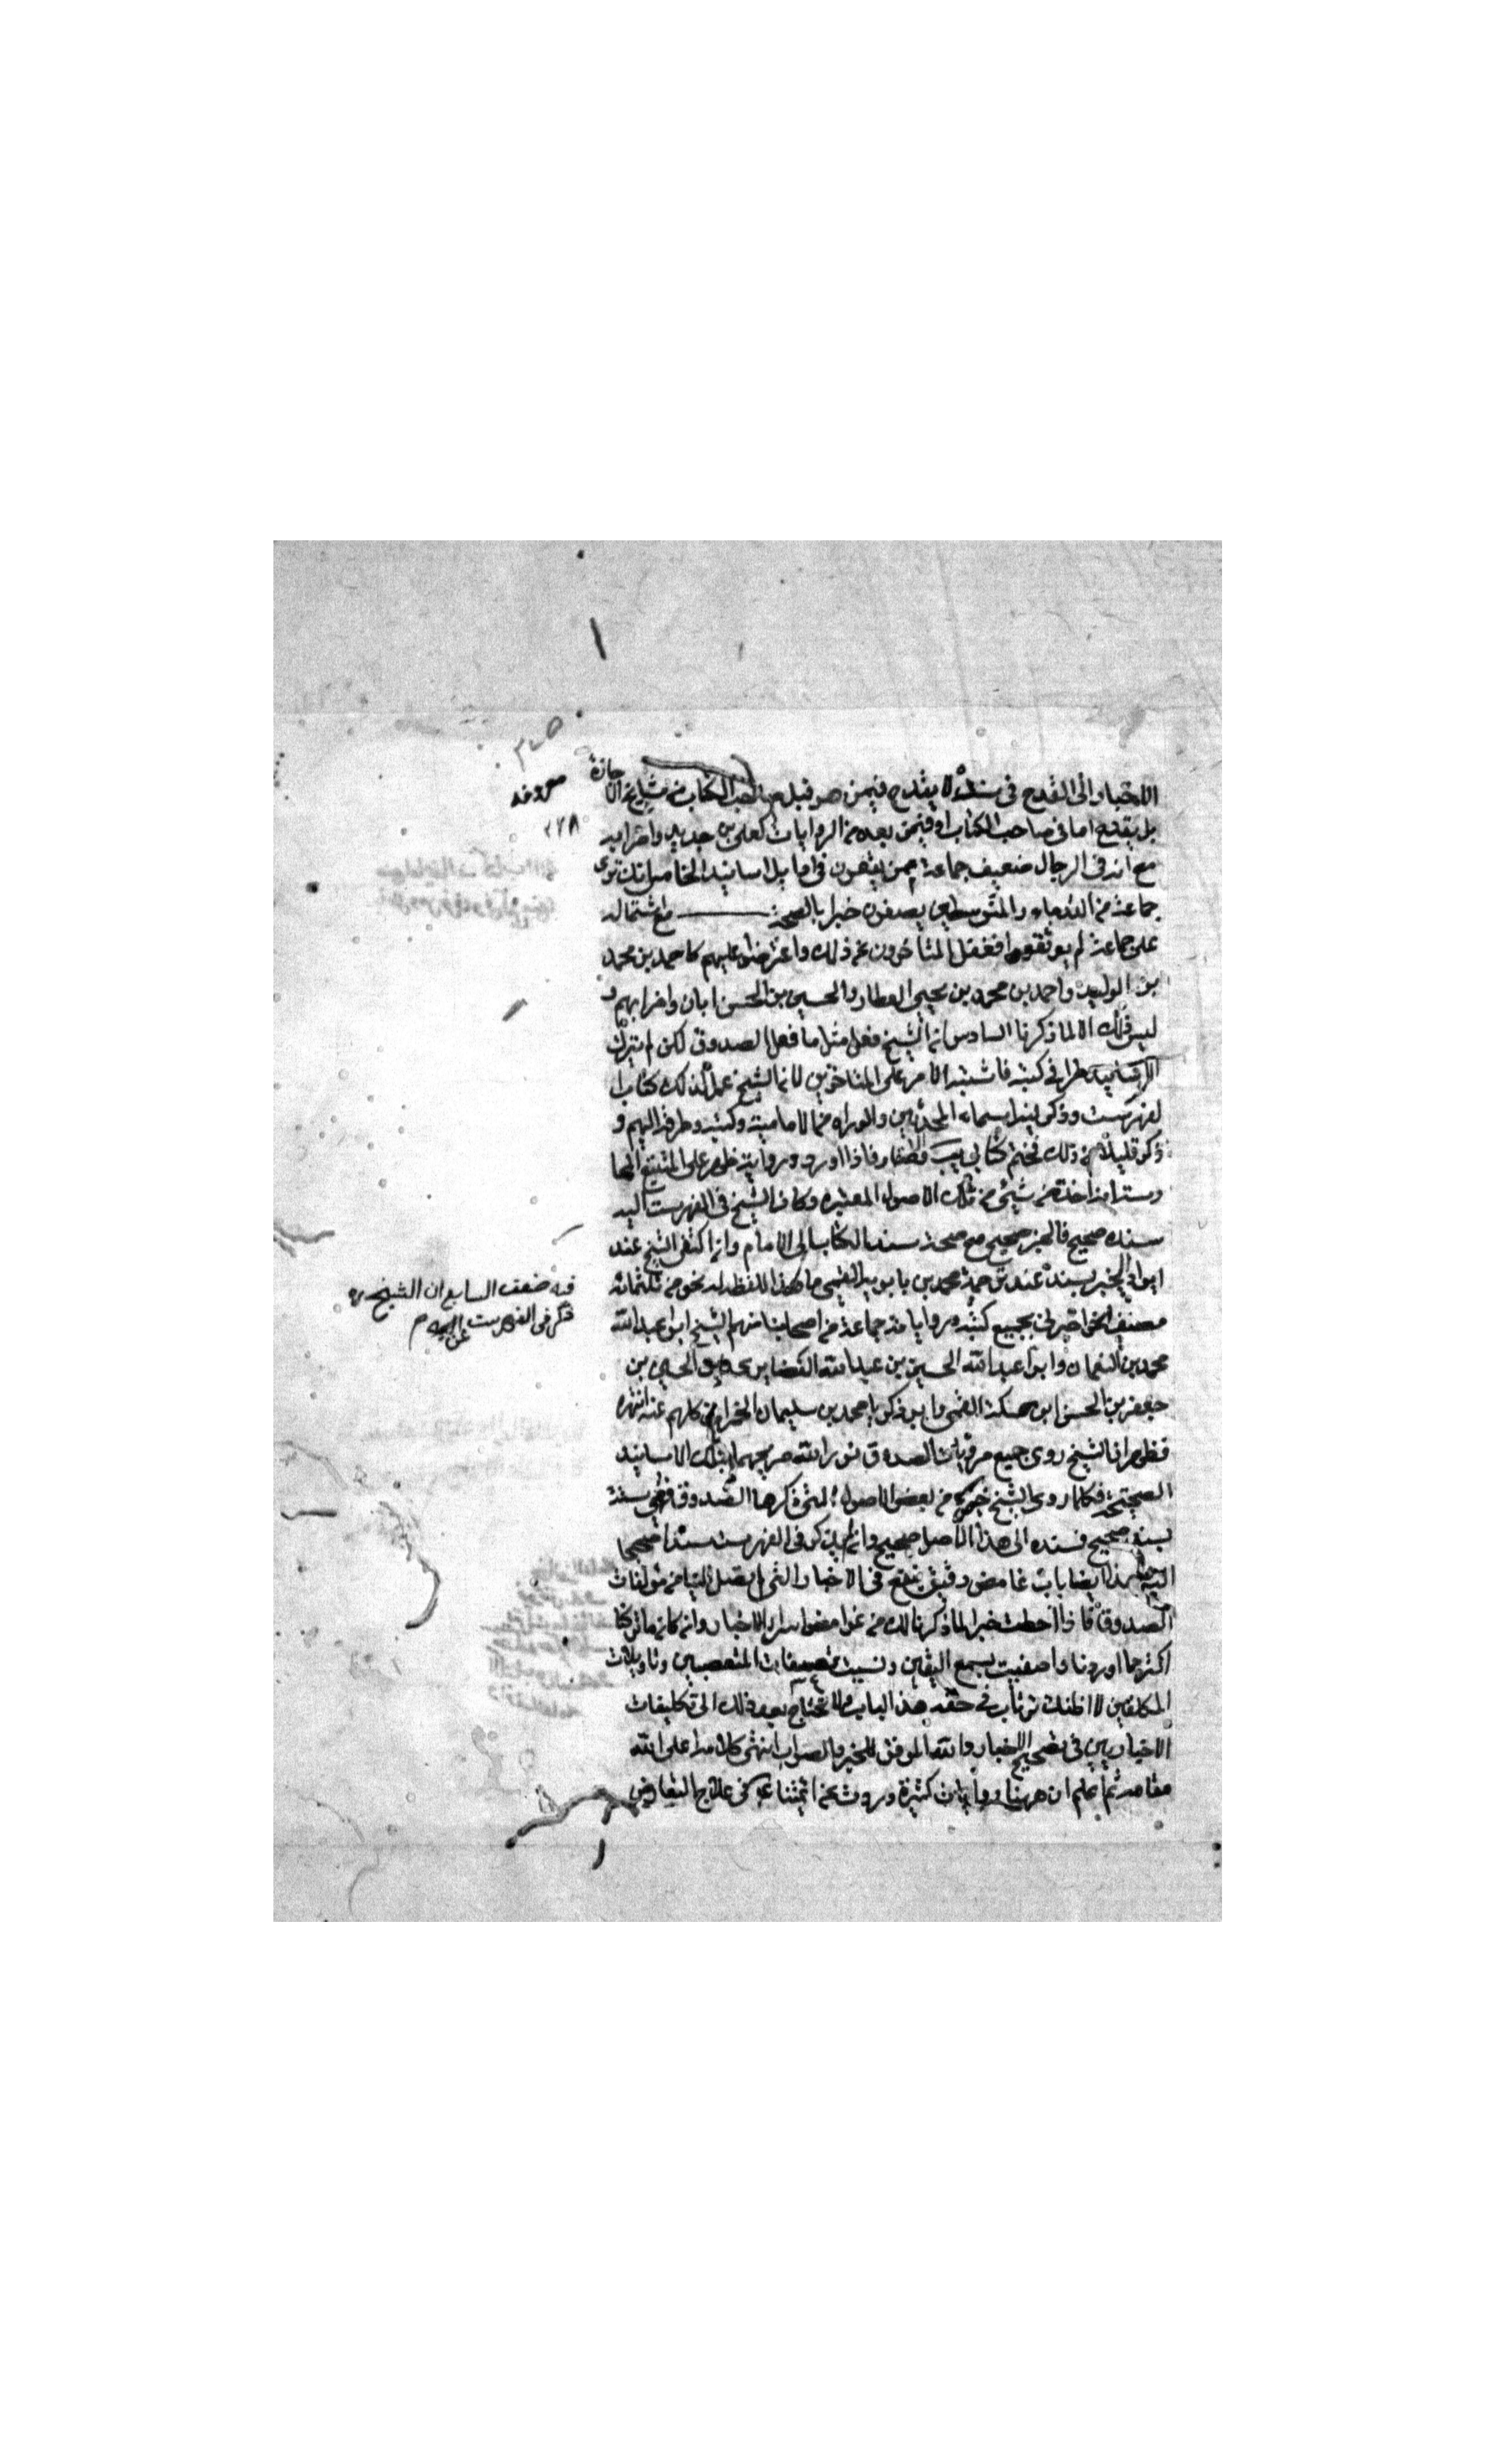 الاخبار الى القدح فى سنده لا يقدح فيمن هو قبل صاحب الكتاب من مشايخ الاجازة
بل يقدح اما فى صاحب الكتاب او فيمن بعده من الروايات كعلى بن حديد واضرابه
مع انه فى الرجال ضعيف جماعة ممن يقعون فى اوايل اسانيد الخامس انك ترى
جماعة من القدماء والمتوسطين يصفون خبرا بالصحة مع اشتماله
على جماعة لم يوثقوا فغفل المتأخرون عن ذلك واعترضوا عليهم كاحمد بن محمد
بن الوليد واحمد بن محمد بن يحيى العطار والحسين بن الحسن ابان واضرابهم و
ليس ذلك الا لما ذكرنا السادس ان الشيخ فعل مثل ما فعل الصدوق لكن لم يترك
الاسانيد طرا فى كتبه فاشتبه الامر على المتاخرين لان الشيخ عمل لذلك كتاب
الفهرست وذكر فيه اسماء المحدثين والرواة من الامامية وكتبهم وطرقه اليهم و
ذكر قليلا من ذلك فى مختتم كتابى فاذا اورد رواية ظهر على المتتبع الممارس
انه اخذه من شئ من تلك الاصول المعتبرة وكان للشيخ فى الفهرست اليه
سند صحيح فالخبر صحيح مع صحة سند الكتاب الى الامام وان اكتفى الشيخ عند
ايراد الخبر بسند عند ترجمة محمد بن بابويه القمى ما هذا لفظه له نحو من ثلثمائة
مصنف اخبرنى بجميع كتبه ورواياته جماعة من اصحابنا منهم الشيخ ابو عبد الله
محمد بن النعمان وابو عبد الله الحسين بن عبيد الله الغضايرى وابو الحسين بن
جعفر بن الحسن ابن حسكة القمى وابو زكريا محمد بن سليمان الحمرانى كلهم عنه انتهى
فظهر ان الشيخ روى جميع مرويات الصدوق نور الله ضريحهما بتلك الاسانيد
الصحيحة فكلما روى الشيخ خبرا من بعض الاصول التى ذكرها الصدوق فى فهرسته
بسند صحيح فسنده الى هذا الاصل صحيح وان لم يذكر فى الفهرست سندا صحيحا
اليه وهذا ايضا باب غامض دقيق ينفع فى الاخبار التى لم يصل الينا من مؤلفات
الصدوق فاذا احطت خبرا لما ذكرنا لك من غوامض اسرار الاخبار وان كان ما تركنا
اكثر مما اوردنا واصغيت بسمع اليقين ونسيت تعسفات المتعصبين وتاويلات
المتكلفين لا اظنك ترتاب فى حقية هذا الباب ولا تحتاج بعد ذلك الى تكليفات
الاخباريين فى تصحيح الاخبار والله الموفق للخير والصواب انتهى كلامه اعلى الله
مقامه ثم اعلم ان ههنا روايات كثيرة وردت عن ائمتنا ع فى علاج التعارض
فيه ضعف السابع ان الشيخ ره
ذكر فى الفهرست
٢٧٨